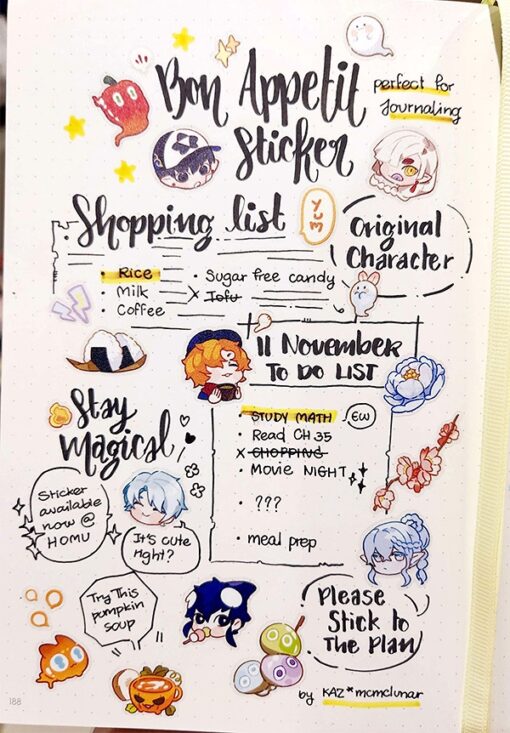 Bon Appetit
Sticker
perfect for
Journaling
Shopping list
YUM
Original
Character
• Rice
• Milk
• Coffee
• Sugar free candy
x Tofu
11 November
TO DO LIST
• STUDY MATH
EW
• Read CH 35
x SHOPPING
• MOVIE NIGHT
• ???
• meal prep
Stay
Magical
Sticker
available
now @
HOMU
It's cute
right?
Try This
pumpkin
soup
Please
Stick to
The Plan
by KAZ*mcmclunar
188